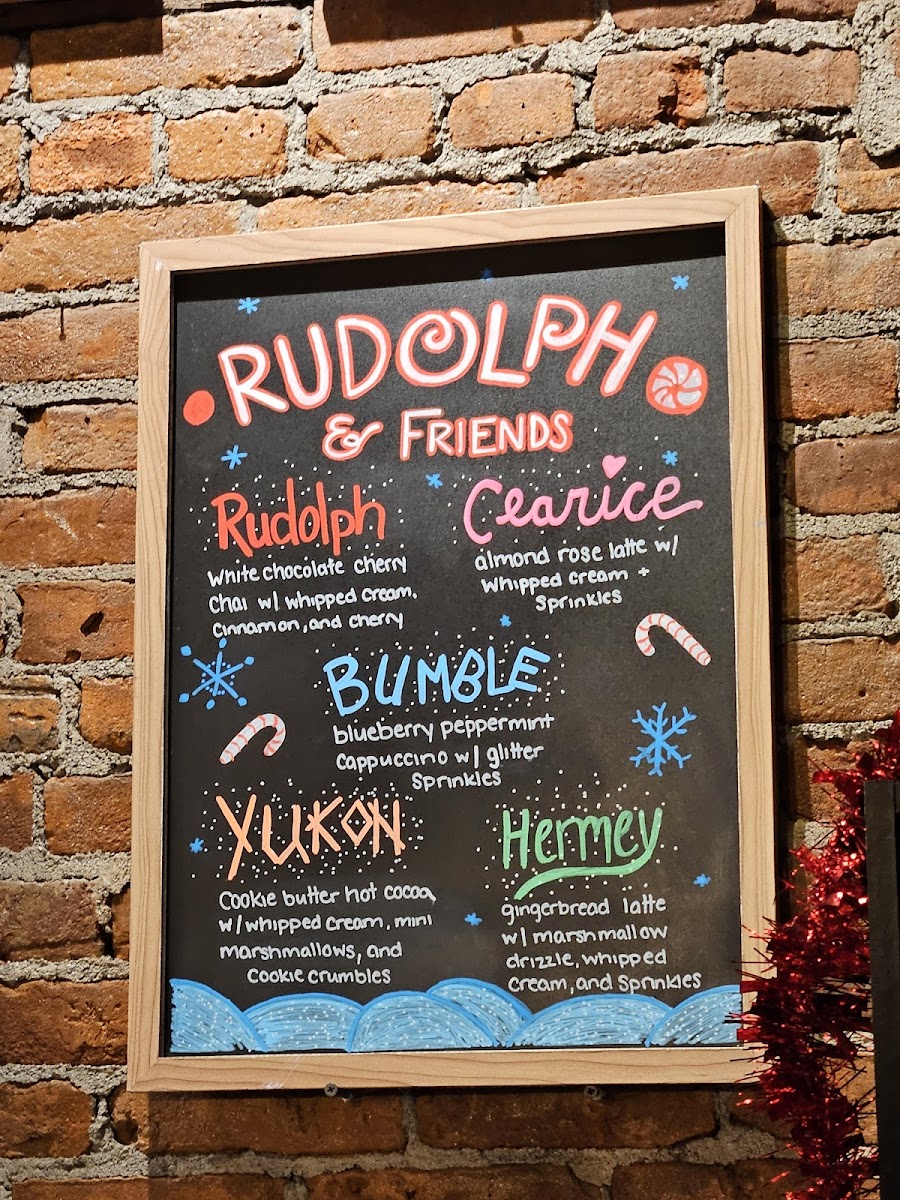 RUDOLPH
& FRIENDS
Rudolph
White chocolate cherry
Chai w/ whipped cream,
cinnamon, and cherry
Clearice
almond rose latte w/
whipped cream +
sprinkles
BUMBLE
blueberry peppermint
cappuccino w/ glitter
sprinkles
YUKON
Cookie butter hot cocoa
w/ whipped cream, mini
marshmallows, and
cookie crumbles
Hermey
gingerbread latte
w/ marshmallow
drizzle, whipped
cream, and sprinkles